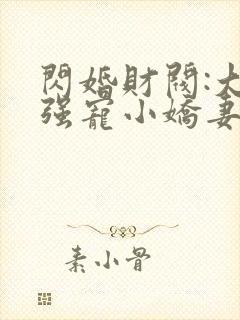 閃婚財閥:大
强寵小嬌妻
素小骨